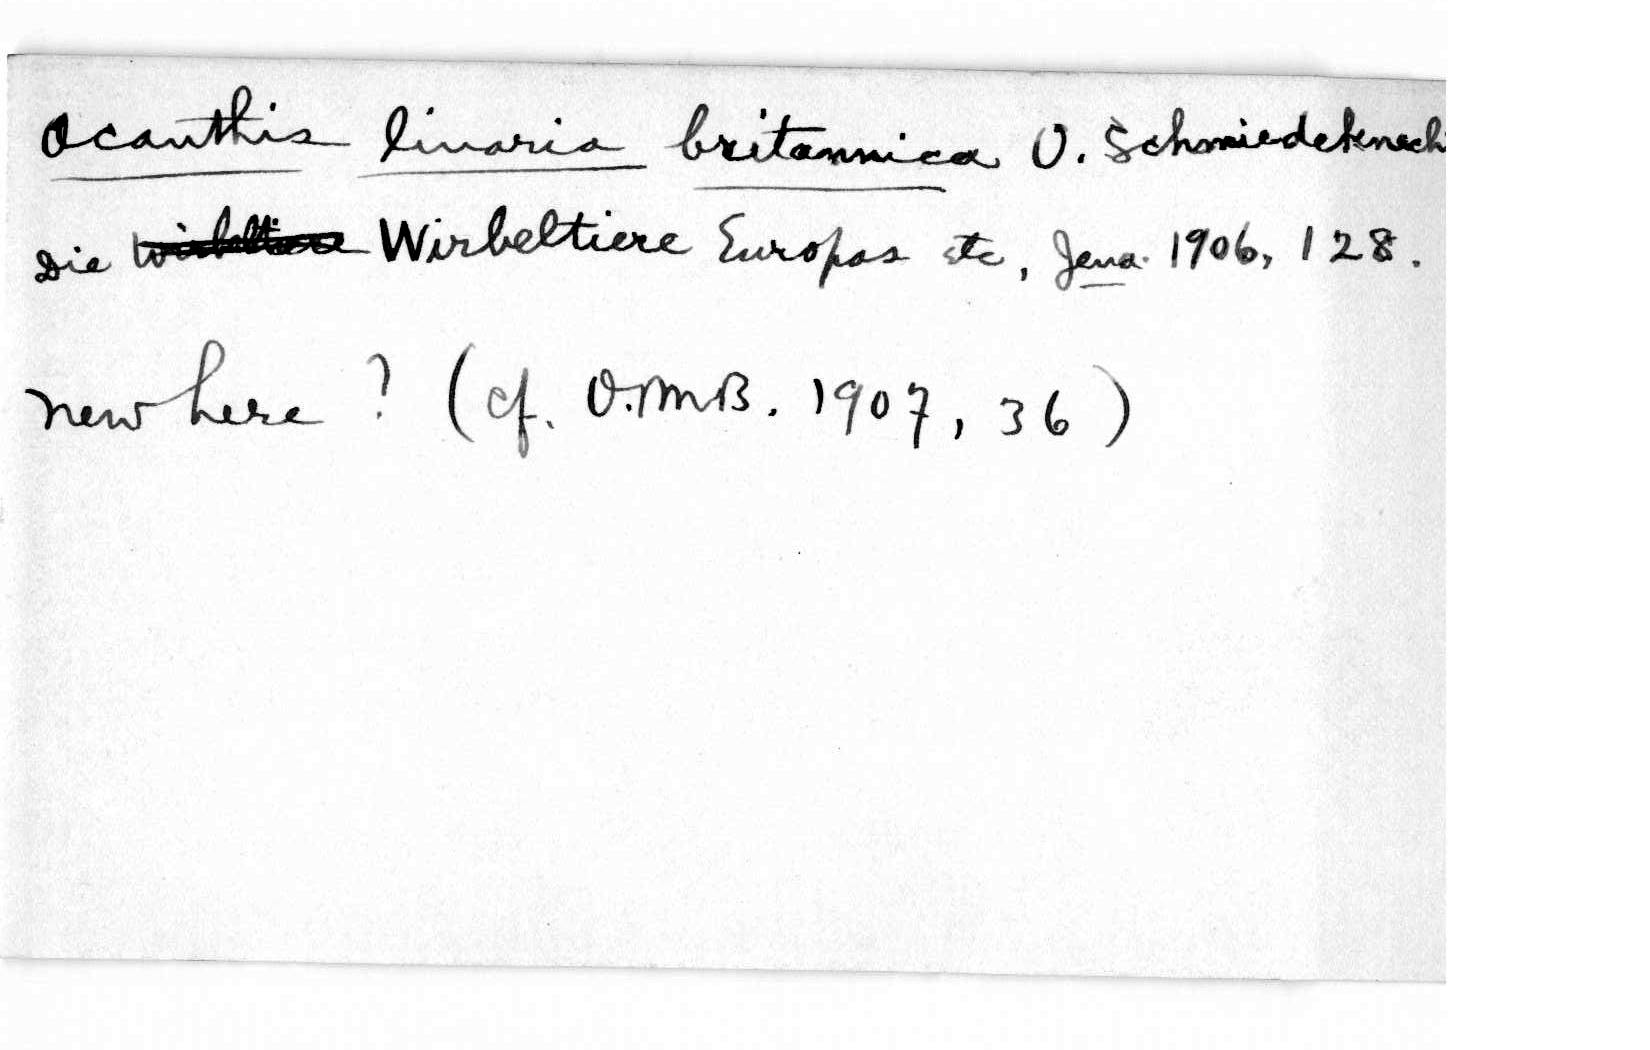 Acanthis linaria britannica O. Schmiedeknech
Die Wirbeltiere Wirbeltiere Europas etc, Jena 1906, 128.
new here ? (cf. O.M.B. 1907, 36)